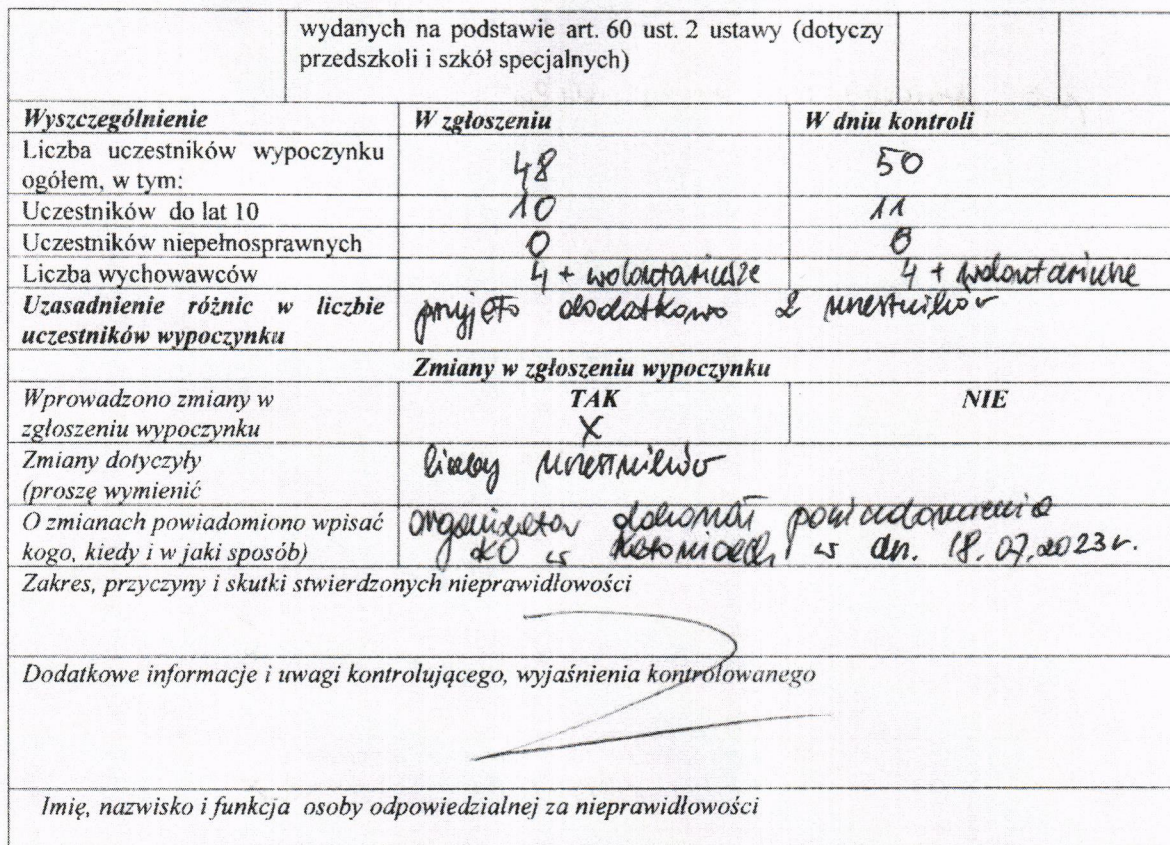 wydanych na podstawie art. 60 ust. 2 ustawy (dotyczy
przedszkoli i szkół specjalnych)
Wyszczególnienie W zgłoszeniu W dniu kontroli
Liczba uczestników wypoczynku
ogółem, w tym: 48 50
Uczestników do lat 10 10 11
Uczestników niepełnosprawnych 0 0
Liczba wychowawców 4 + wolontariusze 4 + wolontariusze
Uzasadnienie różnic w liczbie
uczestników wypoczynku przyjęto dodatkowo 2 uczestników
Zmiany w zgłoszeniu wypoczynku
Wprowadzono zmiany w TAK NIE
zgłoszeniu wypoczynku X
Zmiany dotyczyły liczby uczestników
(proszę wymienić
O zmianach powiadomiono wpisać organizator dokonał powiadomienia
kogo, kiedy i w jaki sposób) KO w Katowicach w dn. 18.07.2023 r.
Zakres, przyczyny i skutki stwierdzonych nieprawidłowości
Dodatkowe informacje i uwagi kontrolującego, wyjaśnienia kontrolowanego
Imię, nazwisko i funkcja osoby odpowiedzialnej za nieprawidłowości